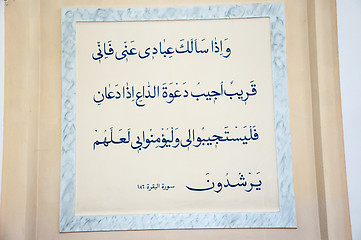 وَإِذَا سَأَلَكَ عِبَادِى عَنِّى فَإِنِّى
قَرِيبٌ أُجِيبُ دَعْوَةَ الدَّاعِ إِذَا دَعَانِ
فَلْيَسْتَجِيبُوا لِى وَلْيُؤْمِنُوا بِى لَعَلَّهُمْ
يَرْشُدُونَ سورة البقرة ١٨٦